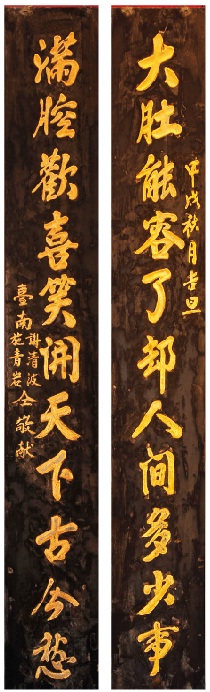 大肚能容了却人间多少事
甲戌秋月吉旦
滿腔歡喜笑開天下古今愁
臺南
謝清波
施青岩
仝敬献